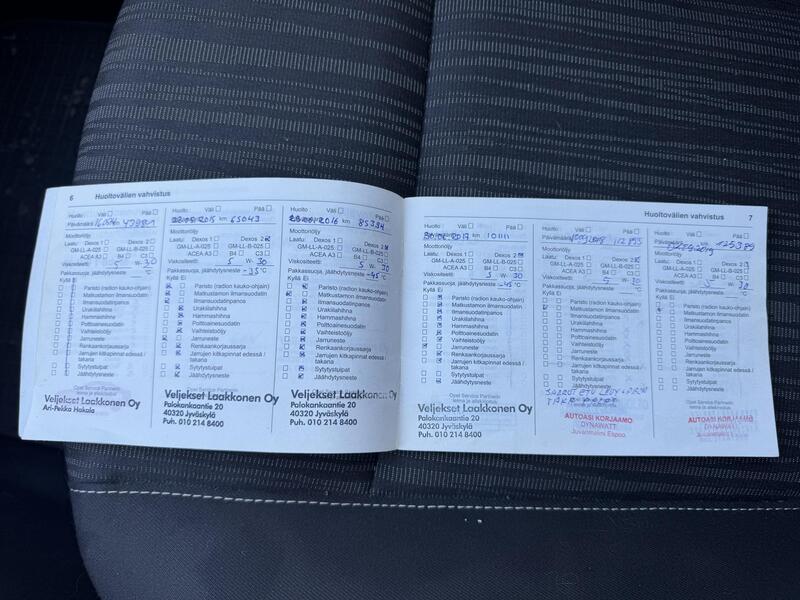 6 Huoltovälien vahvistus
Huolto: Väli Pää
Päivämäärä km 47981
Moottoriöljy
Laatu: Dexos 1 Dexos 2
GM-LL-A-025 GM-LL-B-025
ACEA A3 B4 C3
Viskositeetti: 5 W- 30
Pakkassuoja, jäähdytysneste °C
Kyllä Ei
Paristo (radion kauko-ohjain)
Matkustamon ilmansuodatin
Ilmansuodatinpanos
Urakiilahihna
Hammashihna
Polttoainesuodatin
Vaihteistoöljy
Jarruneste
Renkaankorjaussarja
Jarrujen kitkapinnat edessä /
takana
Sytytystulpat
Jäähdytysneste
Opel Service Partnerin
leima ja allekirjoitus
Veljekset Laakkonen Oy
Ari-Pekka Hakala
Huolto: Väli Pää
2015 km 65043
Moottoriöljy
Laatu: Dexos 1 Dexos 2
GM-LL-A-025
GM-LL-B-025
ACEA A3 B4 C3
Viskositeetti: 5 W- 30
Pakkassuoja, jäähdytysneste -35°C
Kyllä Ei
Paristo (radion kauko-ohjain)
Matkustamon ilmansuodatin
Ilmansuodatinpanos
Urakiilahihna
Hammashihna
Polttoainesuodatin
Vaihteistoöljy
Jarruneste
Renkaankorjaussarja
Jarrujen kitkapinnat edessä /
takana
Sytytystulpat
Jäähdytysneste
Opel Service Partnerin
leima ja allekirjoitus
Veljekset Laakkonen Oy
Palokankaantie 20
40320 Jyväskylä
Puh. 010 214 8400
Huolto: Väli Pää
2016 km 85394
Moottoriöljy
Laatu: Dexos 1 Dexos 2
GM-LL-A-025
GM-LL-B-025
ACEA A3 B4 C3
Viskositeetti: 5 W- 30
Pakkassuoja, jäähdytysneste -45°C
Kyllä Ei
Paristo (radion kauko-ohjain)
Matkustamon ilmansuodatin
Ilmansuodatinpanos
Urakiilahihna
Hammashihna
Polttoainesuodatin
Vaihteistoöljy
Jarruneste
Renkaankorjaussarja
Jarrujen kitkapinnat edessä /
takana
Sytytystulpat
Jäähdytysneste
Veljekset Laakkonen Oy
Palokankaantie 20
40320 Jyväskylä
Puh. 010 214 8400
Huoltovälien vahvistus 7
Huolto: Väli Pää
2017 km 101111
Moottoriöljy
Laatu: Dexos 1 Dexos 2
GM-LL-A-025
GM-LL-B-025
ACEA A3 B4 C3
Viskositeetti: 5 W- 30
Pakkassuoja, jäähdytysneste -45°C
Kyllä Ei
Paristo (radion kauko-ohjain)
Matkustamon ilmansuodatin
Ilmansuodatinpanos
Urakiilahihna
Hammashihna
Polttoainesuodatin
Vaihteistoöljy
Jarruneste
Renkaankorjaussarja
Jarrujen kitkapinnat edessä /
takana
Sytytystulpat
Jäähdytysneste
Opel Service Partnerin
leima ja allekirjoitus
Veljekset Laakkonen Oy
Palokankaantie 20
40320 Jyväskylä
Puh. 010 214 8400
Huolto: Väli Pää
Päivämäärä 2018
Moottoriöljy
Laatu: Dexos 1 Dexos 2
GM-LL-A-025
GM-LL-B-025
ACEA A3 B4 C3
Viskositeetti: 5 W- 30
Pakkassuoja, jäähdytysneste °C
Kyllä Ei
Paristo (radion kauko-ohjain)
Matkustamon ilmansuodatin
Ilmansuodatinpanos
Urakiilahihna
Hammashihna
Polttoainesuodatin
Vaihteistoöljy
Jarruneste
Renkaankorjaussarja
Jarrujen kitkapinnat edessä /
takana
Sytytystulpat
Jäähdytysneste
AUTOASI KORJAAMO
DYNAWATT
Juvanmalmi Espoo
Huolto: Väli Pää
2019 125389
Moottoriöljy
Laatu: Dexos 1 Dexos 2
GM-LL-A-025
GM-LL-B-025
ACEA A3 B4 C3
Viskositeetti: 5 W- 30
Pakkassuoja, jäähdytysneste °C
Kyllä Ei
Paristo (radion kauko-ohjain)
Matkustamon ilmansuodatin
Ilmansuodatinpanos
Urakiilahihna
Hammashihna
Polttoainesuodatin
Vaihteistoöljy
Jarruneste
Renkaankorjaussarja
Jarrujen kitkapinnat edessä /
takana
Sytytystulpat
Jäähdytysneste
Opel Service Partnerin
leima ja allekirjoitus
AUTOASI KORJAAMO
DYNAWATT
Juvanmalmi Espoo